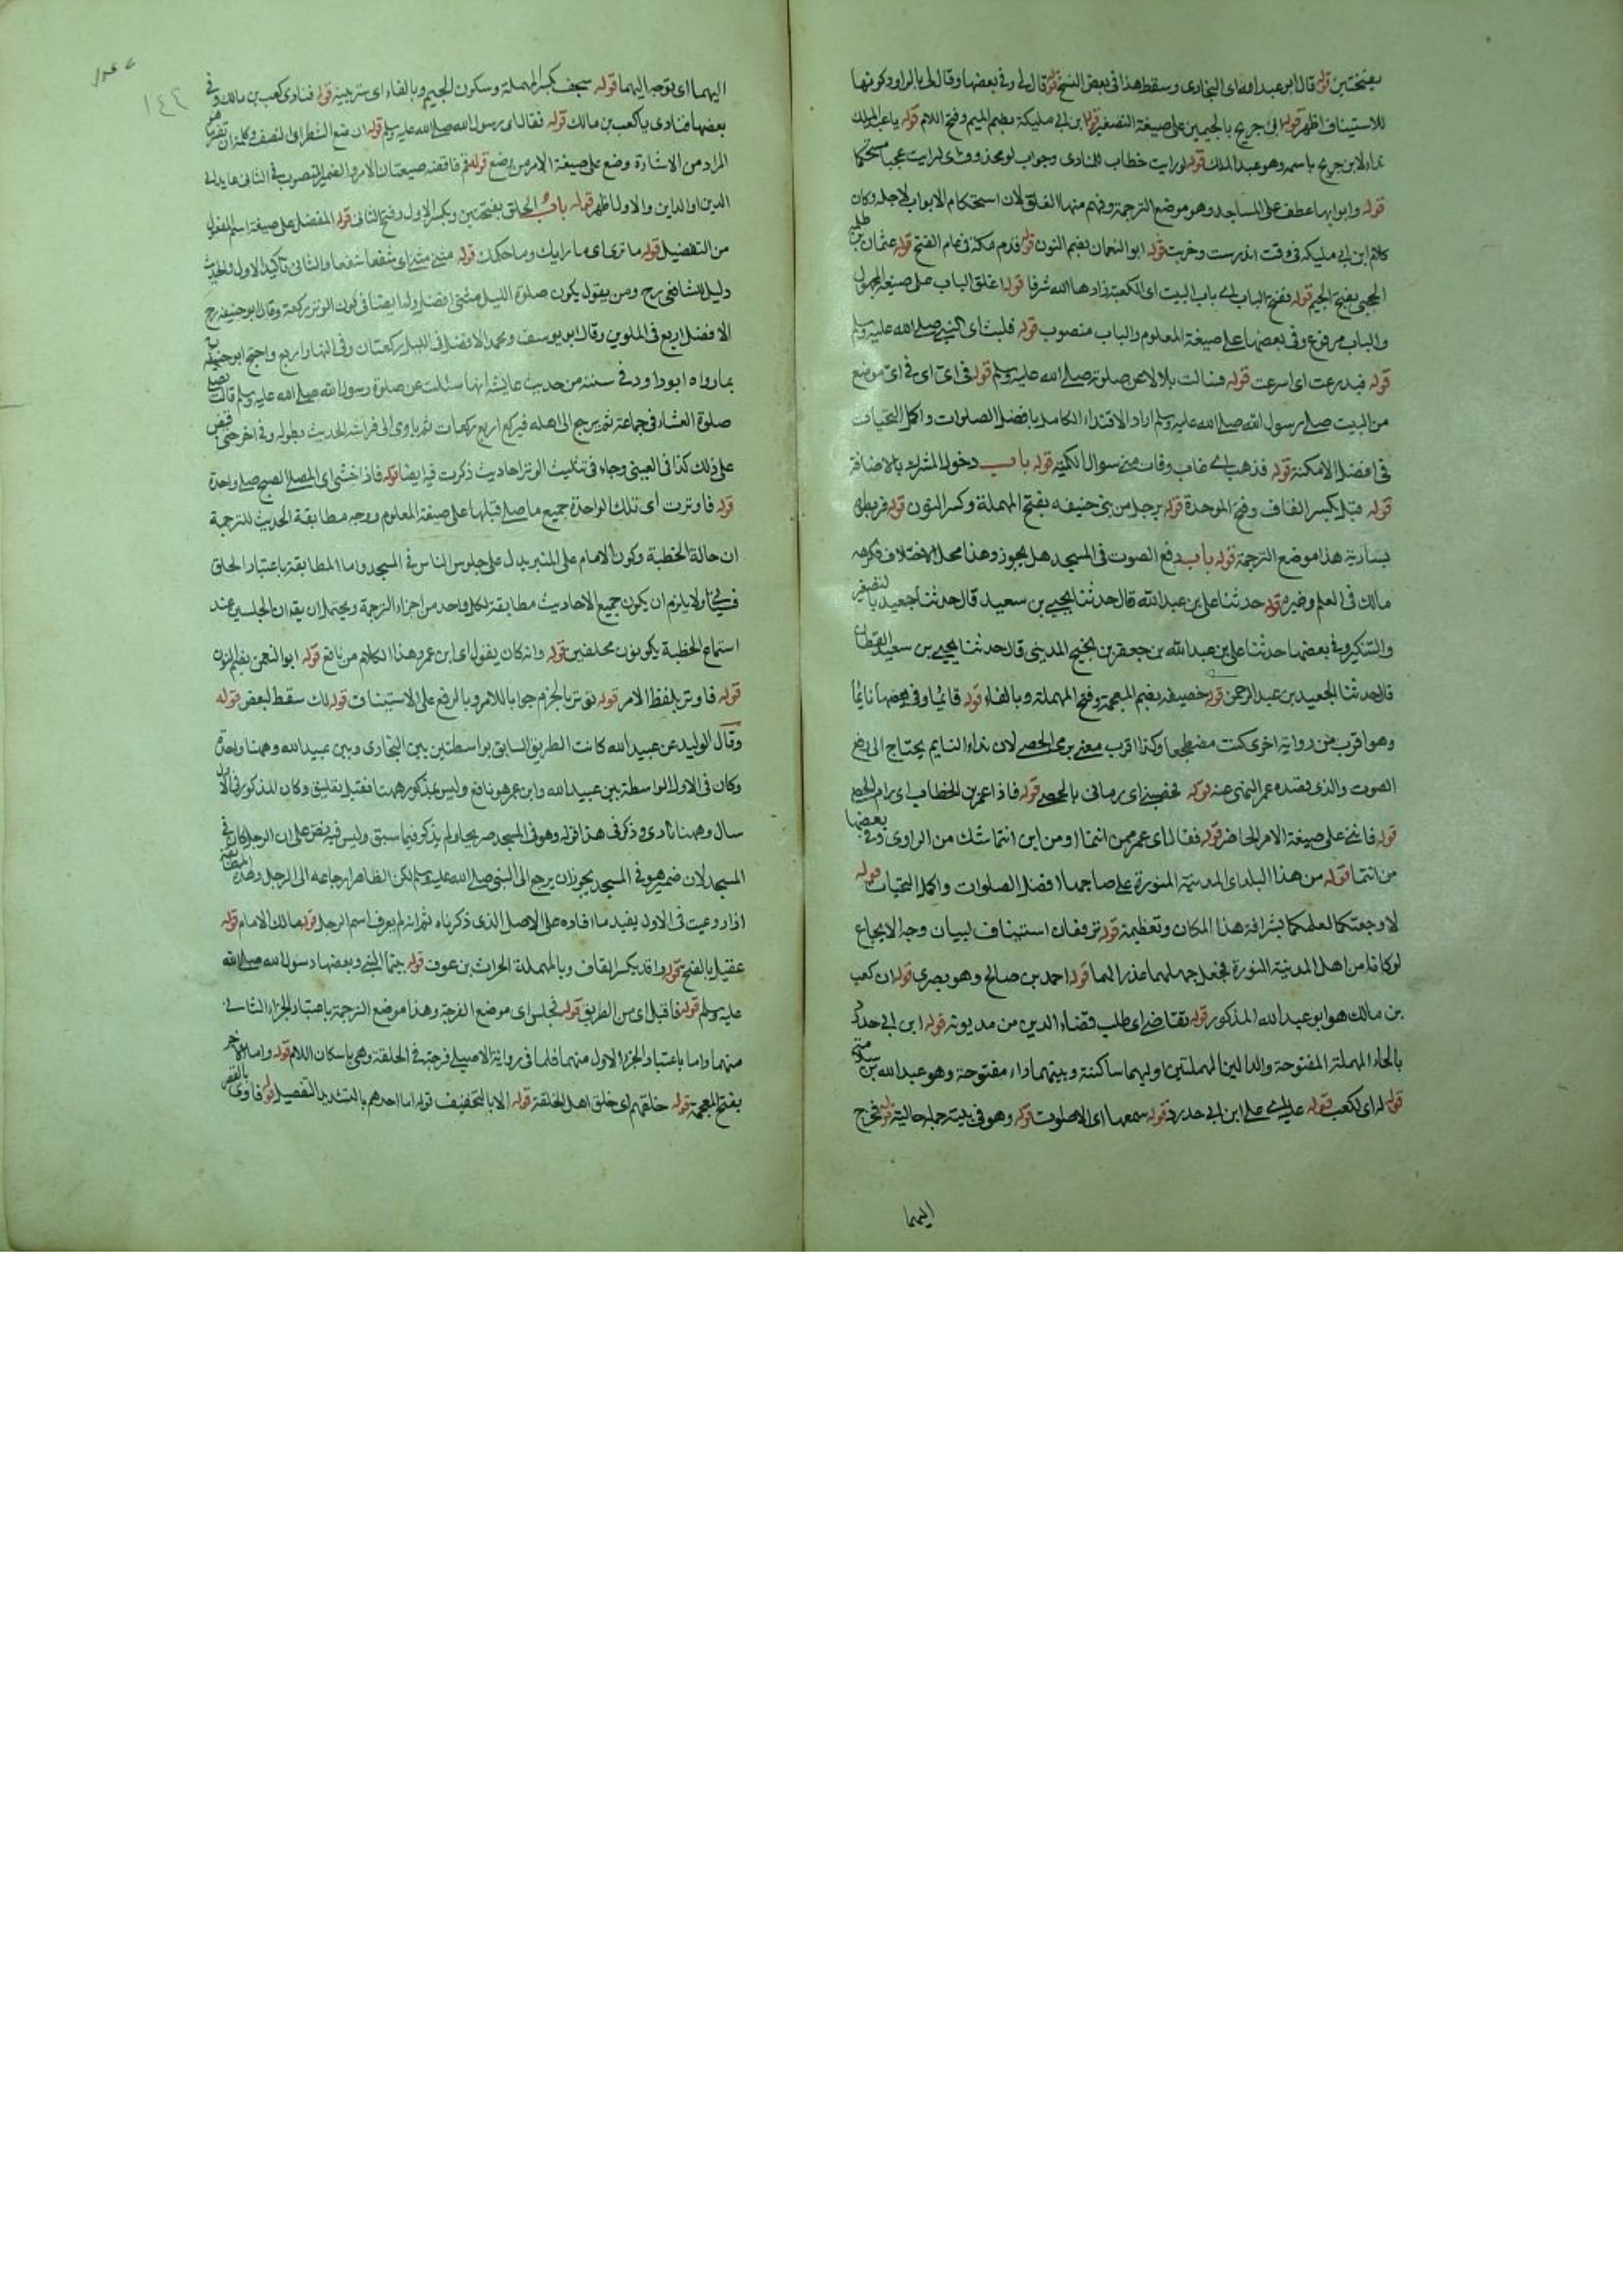 بفتحتين قوله قال ابو عبد الله اى البخارى وسقط هذا فى بعض النسخ قوله قال لى وفى بعضها وقال لى بالواو وكونها
للاستيناف اظهر قوله ابن جريج بالجيمين على صيغة التصغير قوله ابن ابى مليكة بضم الميم وفتح اللام قوله يا عبد الملك
نداء لابن جريج باسمه وهو عبد الملك قوله لو رايت خطاب للمنادى وجواب لو محذوف اى لرايت عجبا مستحكما
قوله وابوابها عطف على المساجد وهو موضع الترجمة وفهم منها الغلق لان استحكام الابواب لاجله وكان
كلام ابن ابى مليكه فى وقت اندرست وخربت قوله ابو النعمان بضم النون قوله قدم مكة فى عام الفتح قوله عثمان بن طلحة
الحجبى بفتح الجيم قوله ففتح الباب اى باب البيت اى الكعبة زادها الله شرفا قوله اغلق الباب على صيغة المجهول
والباب مرفوع وفى بعضها على صيغة المعلوم والباب منصوب قوله فلبث اى النبى صلى الله عليه وسلم
قوله فبدرت اى اسرعت قوله فسالت بلالا عن صلوته صلى الله عليه وسلم قوله فى اى اى فى اى موضع
من البيت صلى رسول الله صلى الله عليه وسلم اراد الاقتداء الكامل بافضل الصلوات واكمل التحيات
فى افضل الامكنة قوله فذهب اى غاب وفات منى سوال الكمية قوله باب دخول المشرك بالاضافة
قوله قبل بكسر القاف وفتح الموحدة قوله برجل من بنى حنيفه بفتح المهملة وكسر النون قوله فربطوه
بسارية هذا موضع الترجمة قوله باب رفع الصوت فى المسجد هل يجوز وهذا محل الاختلاف فكرهه
مالك فى العلم وغيره قوله حدثنا على بن عبد الله قال حدثنا يحيى بن سعيد قال حدثنا جعيد بالتصغير
والتنكير وفى بعضها حدثنا على بن عبد الله بن جعفر بن نجيح المدينى قال حدثنا يحيى بن سعيد القطان
قال حدثنا الجعيد بن عبد الرحمن قوله خصيفه بضم المعجمة وفتح المهملة وبالفاء قوله قائما وفى بعضها نائما
وهو اقرب من رواية اخرى كنت مضطجعا وكذا اقرب معنى برمى الحصى لان نداء النايم يحتاج الى رفع
الصوت والذى يقتده عمر النهى عنه قوله فحصبنى اى رمانى بالحصى قوله فاذا عمر بن الخطاب اى رام الحصى
قوله فاتنى على صيغة الامر الحاضر قوله فقال اى عمر ممن انتما او من اين انتما شك من الراوى وفى بعضها
من انتما قوله من هذا البلد اى المدينة المنورة على صاحبها افضل الصلوات واكمل التحيات قوله
لاوجعتكما لعلمكما بشرافة هذا المكان وتعظيمه قوله ترفعان استيناف لبيان وجه الايجاع
لو كانا من اهل المدينة المنورة فجعل جهلهما عذرا لهما قوله احمد بن صالح وهو بصرى قوله ان كعب
بن مالك هو ابو عبد الله المذكور قوله تقاضى اى طلب قضاء الدين من مديونه قوله ابن ابى حدرد
بالحاء المهملة المفتوحة والدالين المهملتين اوليهما ساكنة وبينهما راء مفتوحة وهو عبد الله بن
قوله له اى لكعب قوله عليه اى على ابن ابى حدرد قوله سمعها اى الاصوات قوله وهو فى بيته جملة حالية قوله فخرج
اليهما
اليهما اى توجه اليهما قوله سجف بكسر المهملة وسكون الجيم وبالفاء اى ستر بيته قوله فنادى كعب بن مالك وفى
بعضها فنادى يا كعب بن مالك قوله فقال اى رسول الله صلى الله عليه وسلم قوله ان ضع الشطر اى النصف وكلمة ان تفسير
المراد من الاشارة وضع على صيغة الامر من يضع قوله قم فاقضه صيغتان الامر والضمير المنصوب فى الثانى عايد الى
الدين او الداين والاول اظهر قوله باب الحلق بفتحتين وبكسر الاول وفتح الثانى قوله المفضل على صيغة اسم المفعول
من التفضيل قوله ما ترى اى ما رايك وما حكمك قوله مثنى مثنى اى شفعا شفعا والثانى تاكيد الاول والحديث
دليل للشافعى رح ومن يقول يكون صلوة الليل مثنى افضل ولنا ايضا فى كون الوتر بركعة وقال ابو حنيفة رح
الافضل اربع فى الملوين وقال ابو يوسف ومحمد الافضل فى الليل ركعتان وفى النهار اربع واحتج ابو حنيفة
بما رواه ابو داود فى سننه من حديث عايشة انها سئلت عن صلوة رسول الله صلى الله عليه وسلم قالت
صلوة العشاء فى جماعة ثم يرجع الى اهله فيركع اربع ركعات ثم ياوى الى فراشه الحديث بطوله وفى اخر حتى قبض
على ذلك كذا فى العينى وجاء فى تثليث الوتر احاديث ذكرت فيه ايضا قوله فاذا خشى اى المصلى الصبح صلى واحدة
قوله فاوترت اى تلك الواحدة جميع ما صلى قبلها على صيغة المعلوم ووجه مطابقة الحديث للترجمة
ان حالة الخطبة وكون الامام على المنبر يدل على جلوس الناس فى المسجد واما المطابقة باعتبار الحلق
ولا يلزم ان يكون جميع الاحاديث مطابقة لكل واحد من اجزاء الترجمة ويحتمل ان يقال ان الجلسى عند
استماع الخطبة يكونون محلقين قوله وانه كان يقول اى ابن عمر وهذا الكلام من نافع قوله ابو النعمن بضم النون
قوله فاوتر بلفظ الامر قوله توتر بالجزم جوابا للامر وبالرفع على الاستيناف قوله لك سقط لبعض قوله
وقال الوليد عن عبيد الله كانت الطريق السابق بواسطتين بين البخارى وبين عبيد الله وههنا واحدة
وكان فى الاول الواسطة بين عبيد الله وابن عمر هو نافع وليس بمذكور ههنا فقيل تعليق وكان المذكور فى الاول
سال وههنا نادى وذكر فى هذا قوله وهو فى المسجد صريحا ولم يذكر فيما سبق وليس فيه نص على ان الرجل كان فى
المسجد لان ضمير هو فى المسجد يجوز ان يرجع الى النبى صلى الله عليه وسلم لكن الظاهر ارجاعه الى الرجل وهذه
اذا روعيت فى الاول يفيد ما افاده على الاصل الذى ذكرناه ثم انه لم يعرف اسم الرجل قوله مالك الامام قوله
عقيل بالفتح قوله واقد بكسر القاف وبالمهملة الحراث بن عوف قوله بينما النبى وبعضها رسول الله صلى الله
عليه وسلم قوله فاقبل اى من الطريق قوله فجلس اى موضع الفرجة وهذا موضع الترجمة باعتبار الجزء الثانى
منهما واما باعتبار الجزء الاول منهما فلما فى رواية الاصيلى فرجة فى الحلقة وهى باسكان اللام قوله واما الاخر
بفتح المعجمة قوله خلفهم اى خلف اهل الحلقة قوله الا بالتخفيف قوله اما احدهم بالتشديد التفصيل قوله فاوى بالقصر